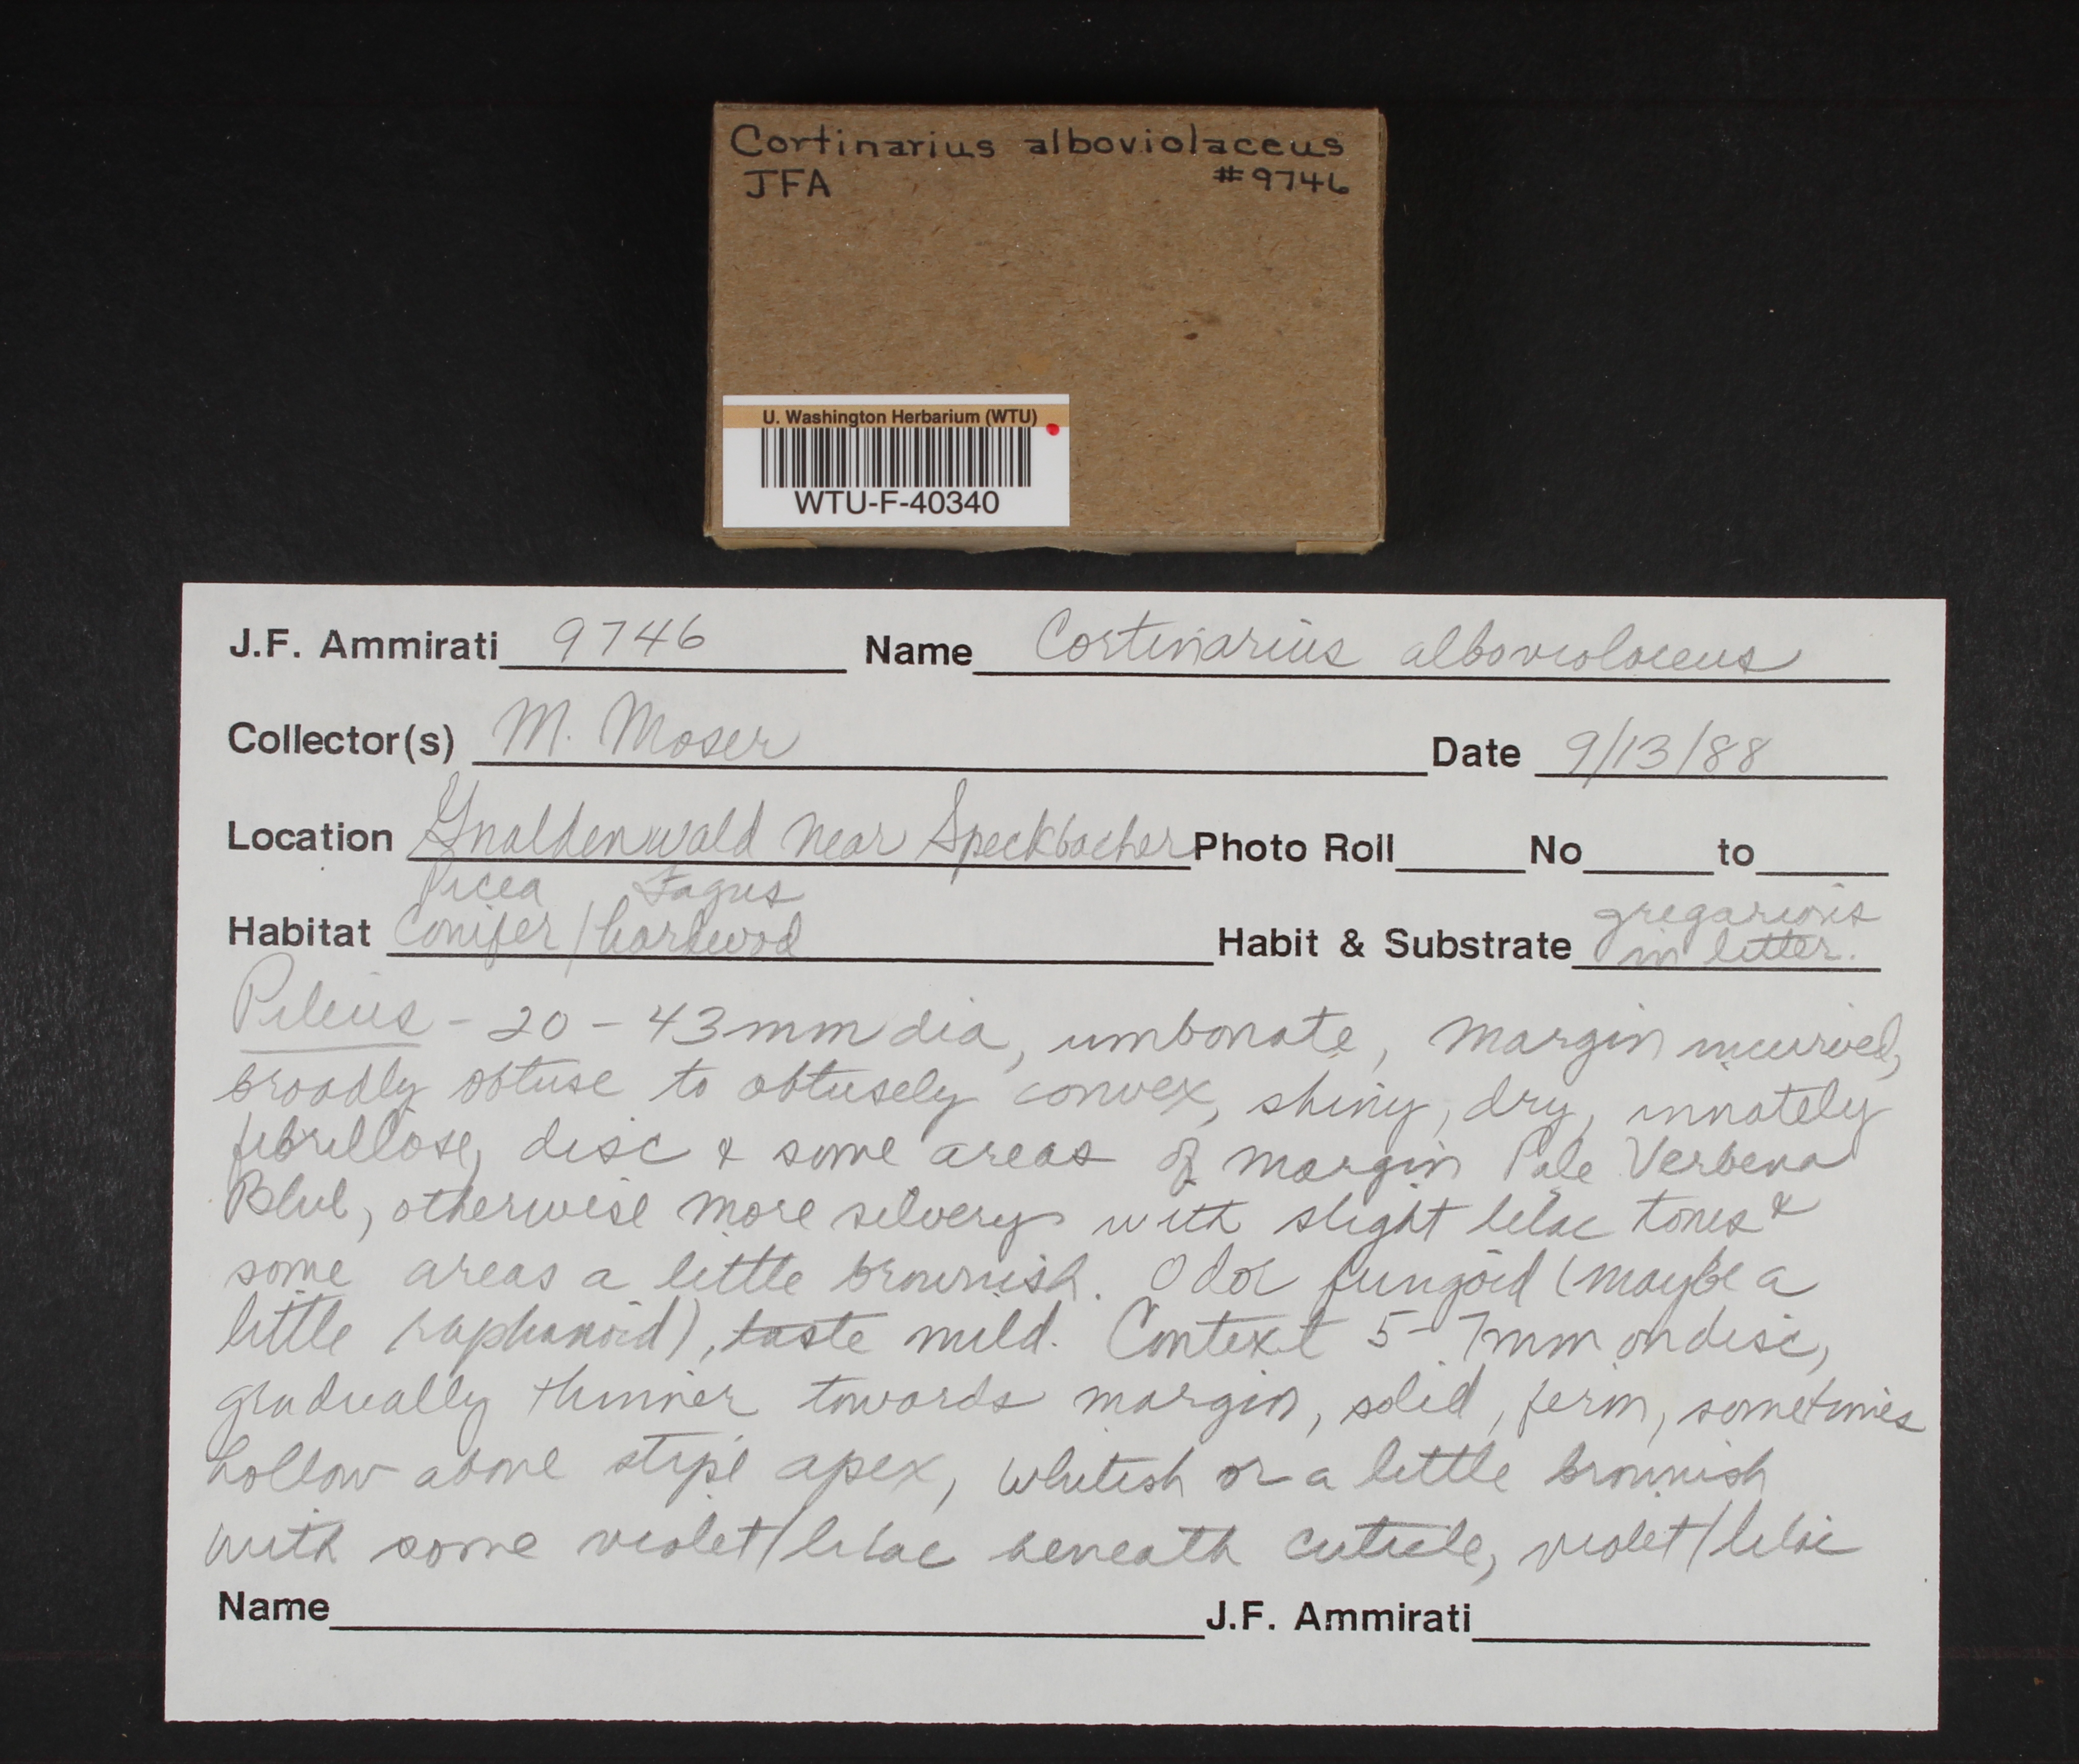 Cortinarius alboviolaceus
JFA #9746
U. Washington Herbarium (WTU)
WTU-F-40340
J.F. Ammirati 9746 Name Cortinarius alboviolaceus
Collector(s) M. Moser Date 9/13/88
Location Gnaldenwald near Speckbacher Photo Roll No to
Picea Fagus
Habitat Conifer/hardwood Habit & Substrate gregarious
in litter.
Pileus - 20 - 43mm dia, umbonate, margin incurved,
broadly obtuse to obtusely convex, shiny, dry, innately
fibrillose, disc & some areas of margin Pale Verbena
Blue, otherwise more silvery with slight lilac tones &
some areas a little brownish. Odor fungoid (maybe a
little raphanoid), taste mild. Context 5-7mm on disc,
gradually thinner towards margin, solid, firm, sometimes
hollow above stipe apex, whitish or a little brownish
with some violet/lilac beneath cuticle, violet/lilac
Name J.F. Ammirati